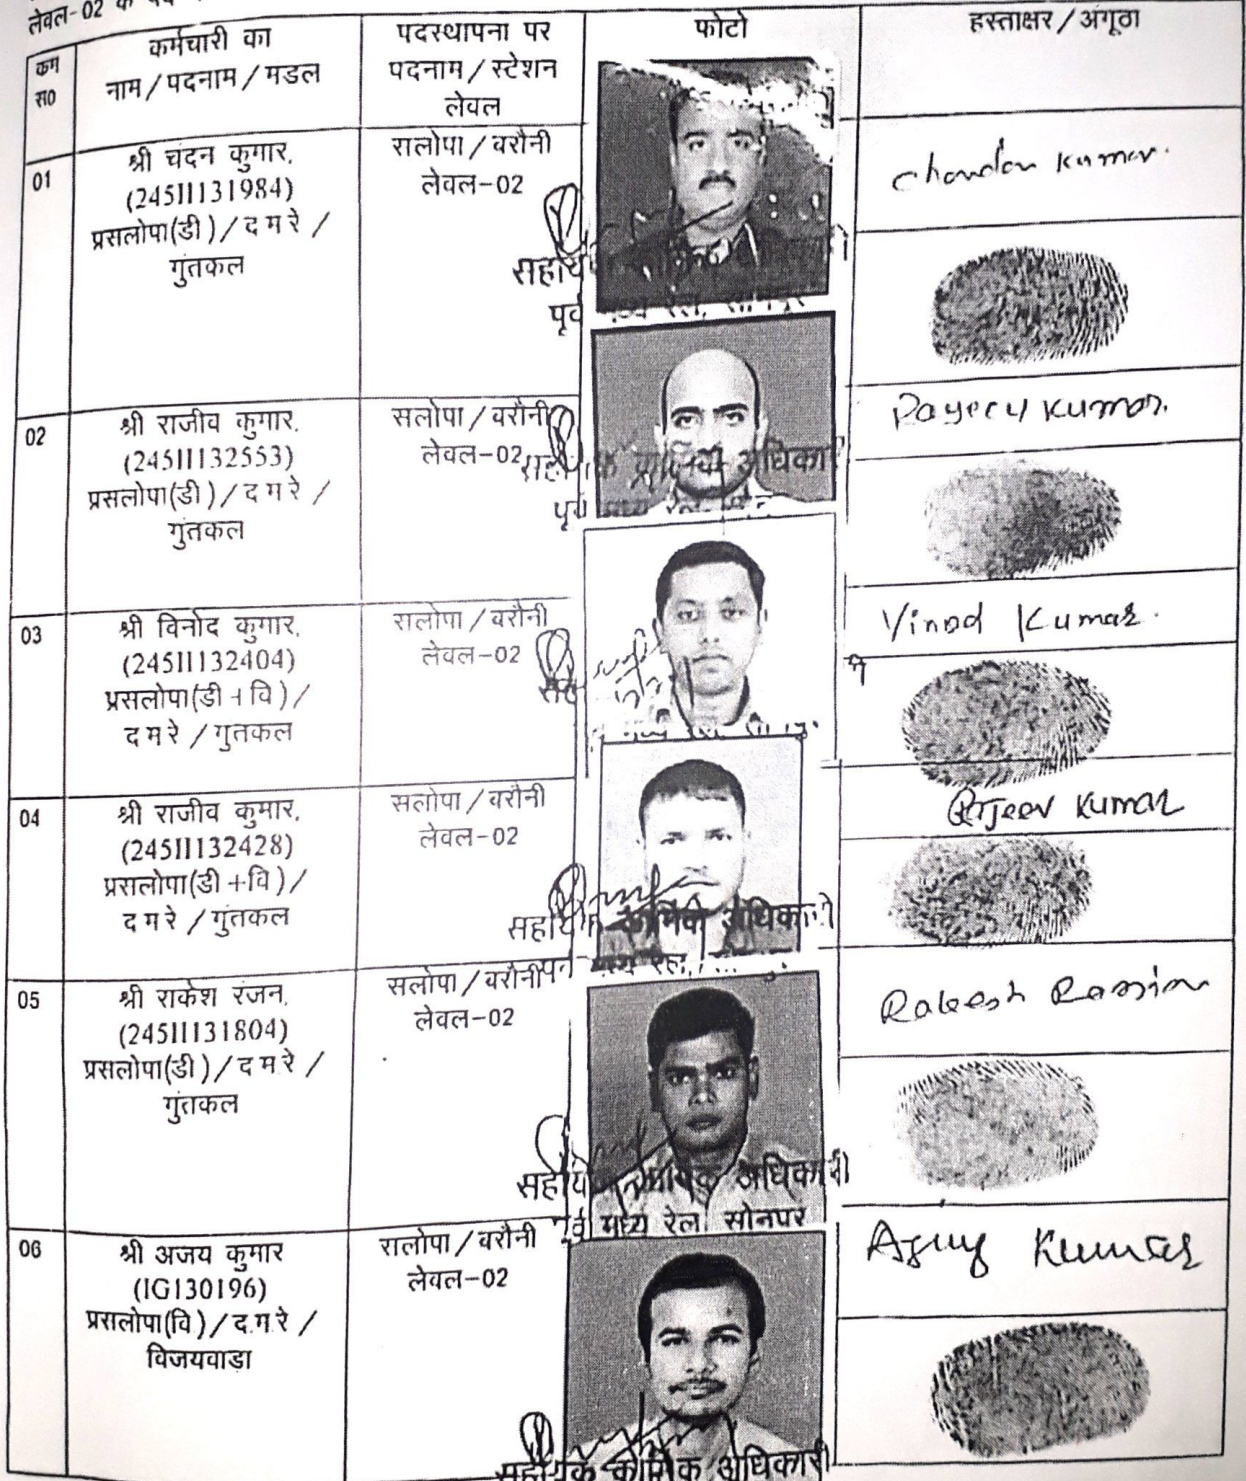 लेवल-02 के
कम स0
कर्मचारी का नाम/पदनाम/मडल
पदस्थापना पर पदनाम/स्टेशन लेवल
फोटो
हस्ताक्षर/अंगूठा
01
श्री चंदन कुमार,
(245II131984)
प्रसलोपा(डी)/द म रे /
गुंतकल
सलोपा/बरौनी
लेवल-02
Chandan Kumar.
02
श्री राजीव कुमार,
(245II132553)
प्रसलोपा(डी)/द म रे /
गुंतकल
सलोपा/बरौनी
लेवल-02
Kumar.
03
श्री विनोद कुमार,
(245II132404)
प्रसलोपा(डी+वि)/
द म रे /गुतकल
सलोपा/बरौनी
लेवल-02
Vinod Kumar.
04
श्री राजीव कुमार,
(245II132428)
प्रसलोपा(डी+वि)/
द म रे /गुंतकल
सलोपा/बरौनी
लेवल-02
सहायक कार्मिक अधिकारी
Rajeev Kumar
05
श्री राकेश रंजन,
(245II131804)
प्रसलोपा(डी)/द म रे /
गुंतकल
सलोपा/बरौनी
लेवल-02
सहायक कार्मिक अधिकारी
पूर्व मध्य रेल, सोनपुर
Rakesh Ranjan
06
श्री अजय कुमार
(IG130196)
प्रसलोपा(वि)/द.म.रे /
विजयवाडा
सलोपा/बरौनी
लेवल-02
सहायक कार्मिक अधिकारी
Ajay Kumar